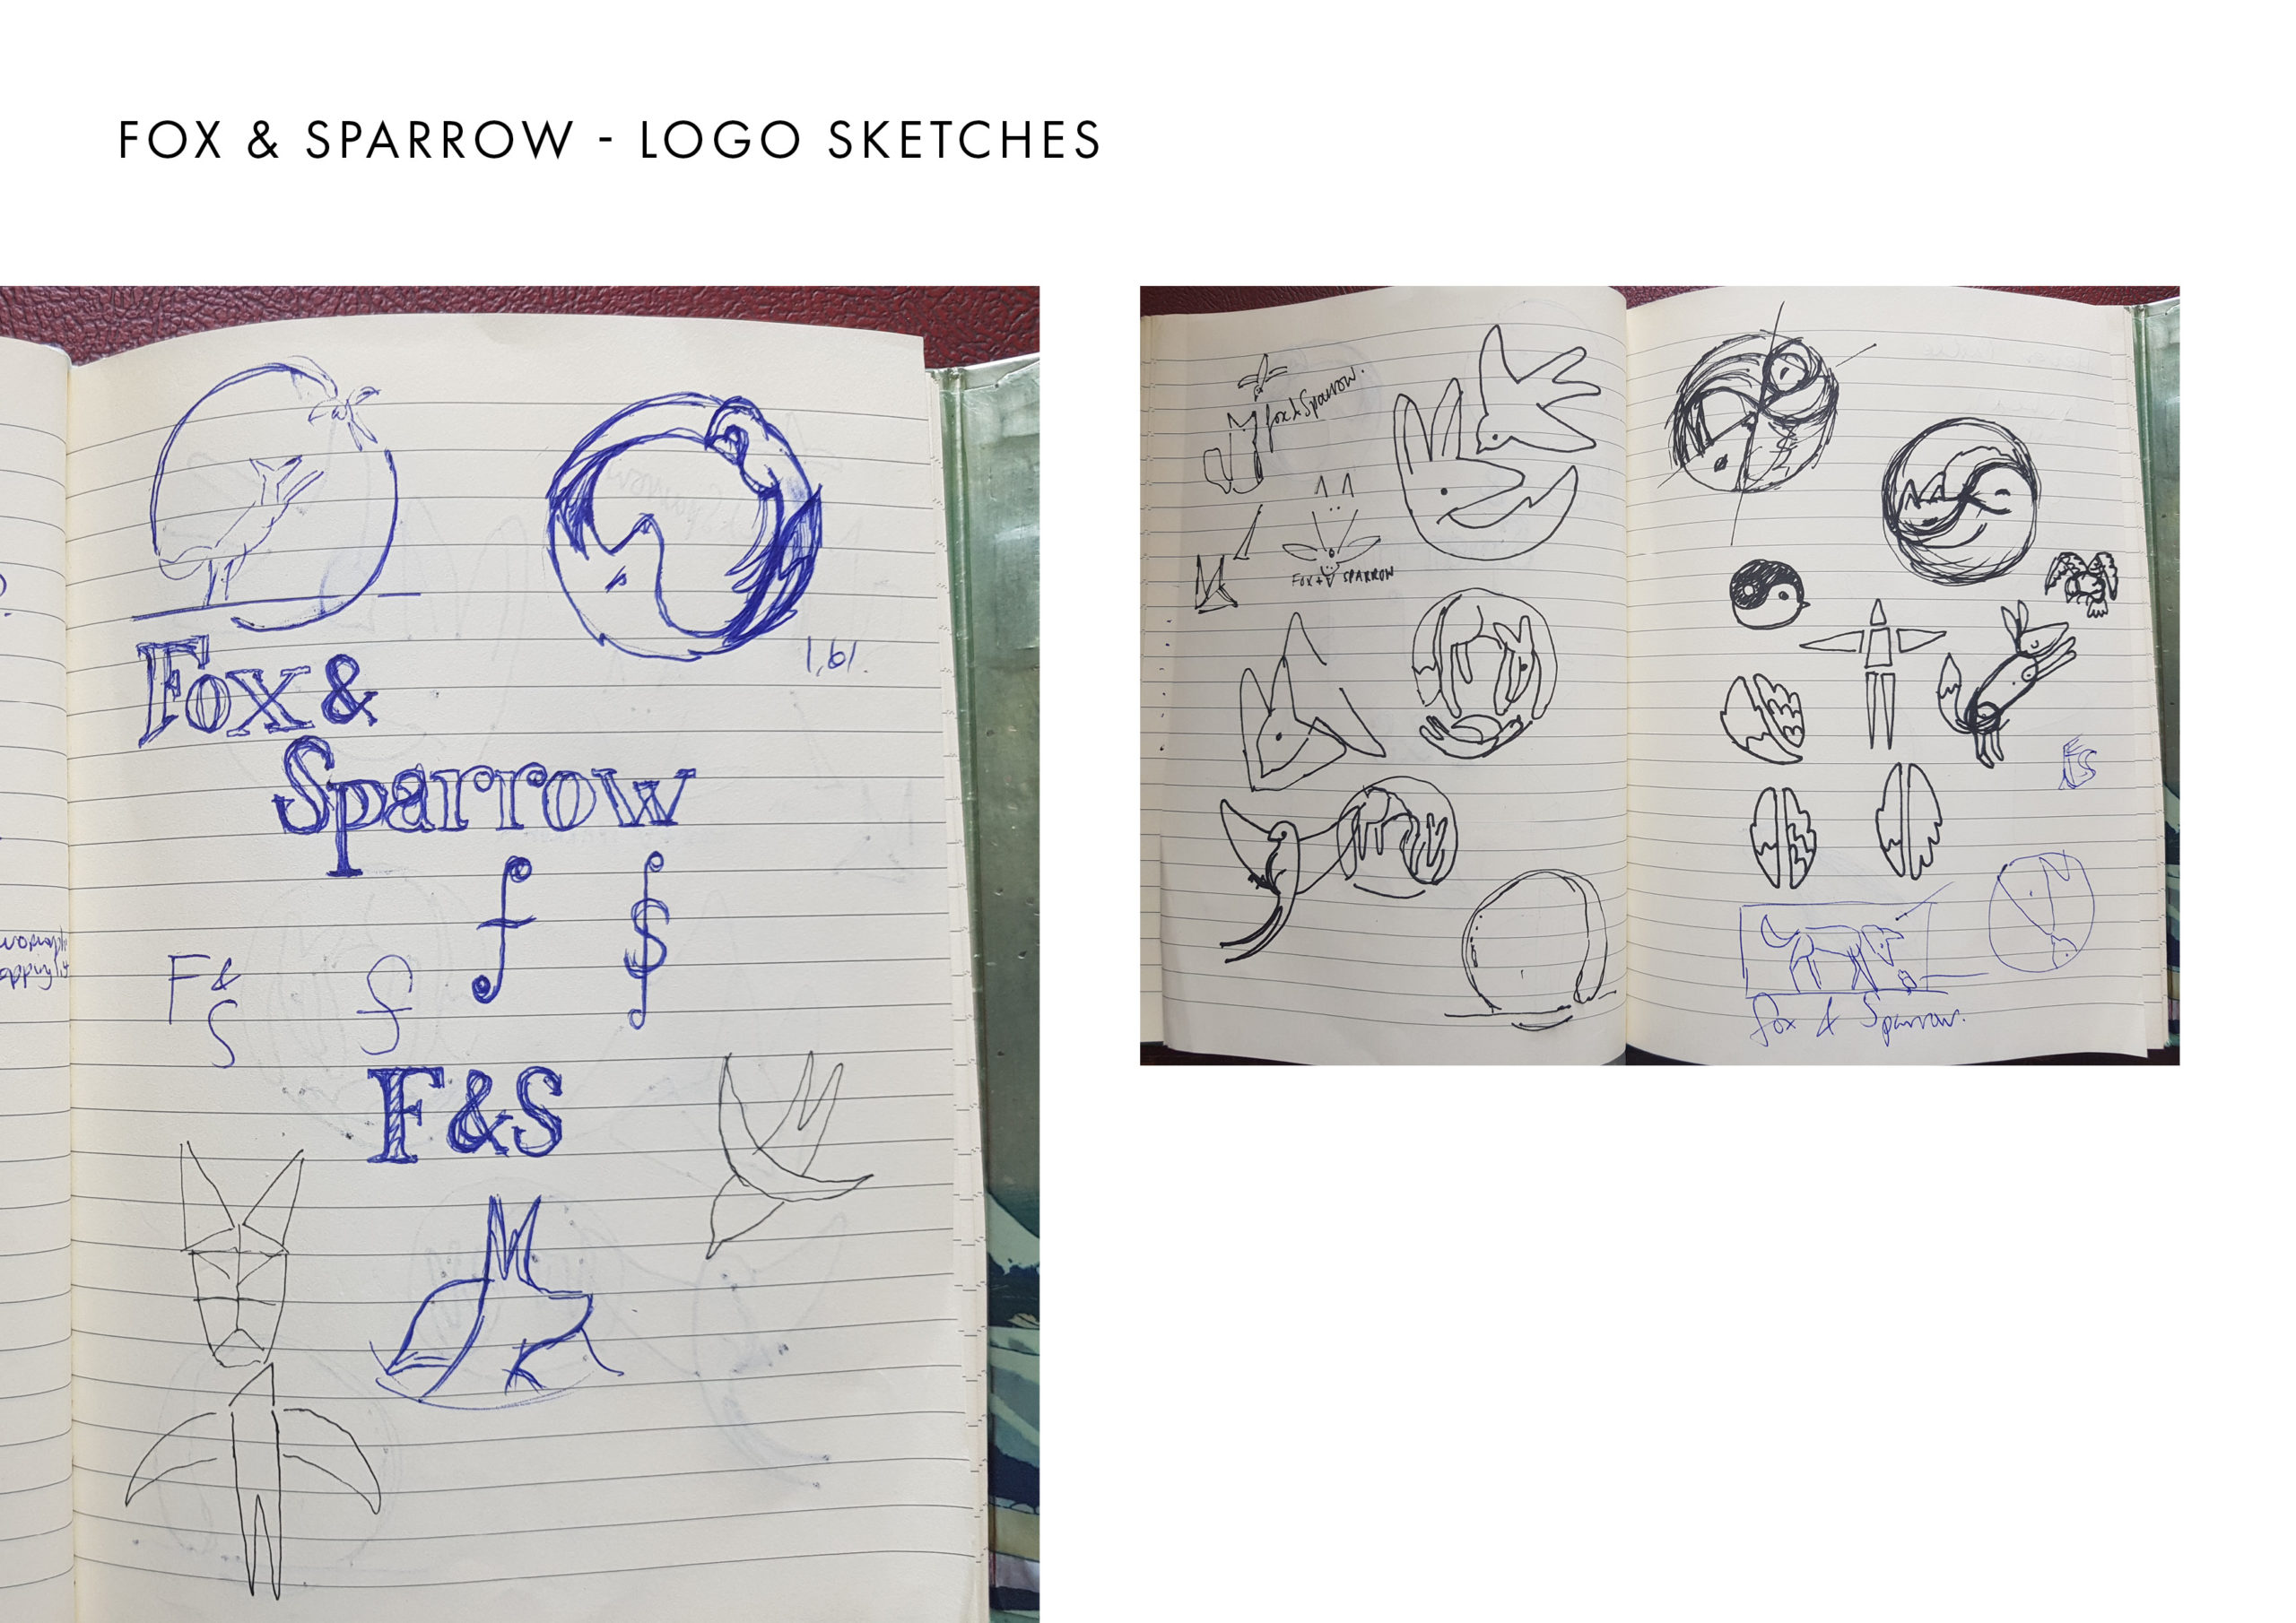 FOX & SPARROW - LOGO SKETCHES
1,61.
Fox &
Sparrow
f $
F &
S
f
F&S
fox & Sparrow.
FOX + SPARROW
FS
fox & Sparrow.